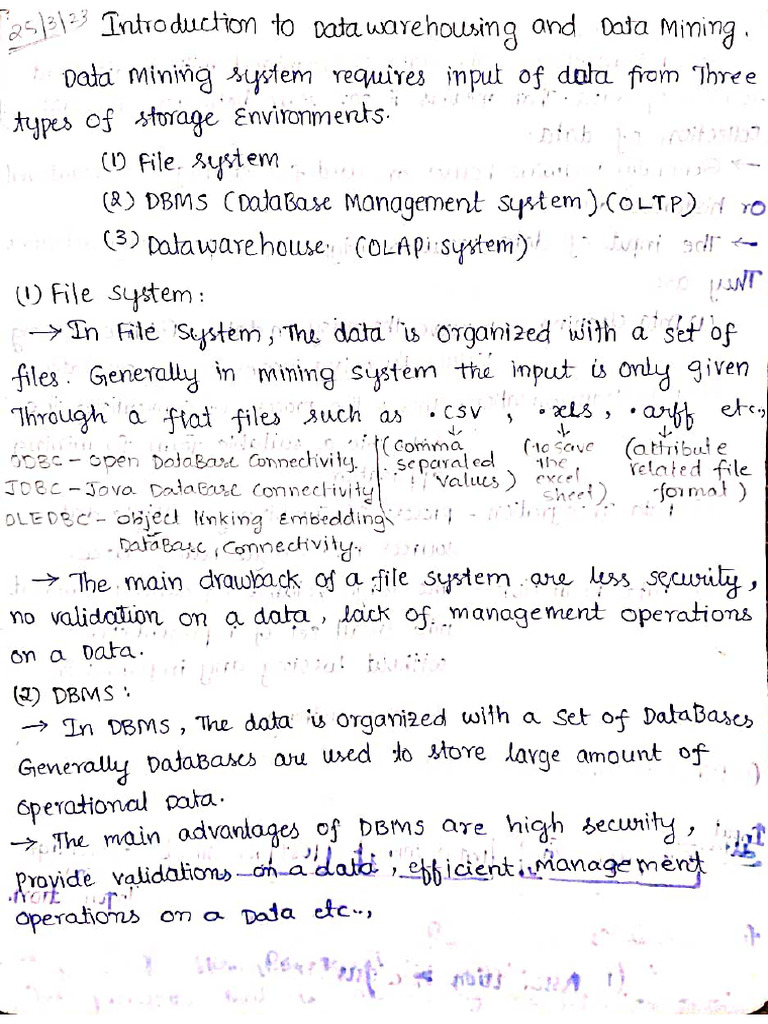 25/3/23 Introduction to Datawarehousing and Data Mining.
Data Mining system requires input of data from Three
types of storage Environments.
(1) File system.
(2) DBMS (DataBase Management System).(OLTP)
(3) Datawarehouse. (OLAP system)
(1) File system:
→ In File System, The data is organized with a set of
files. Generally in mining system the input is only given
Through a flat files such as .csv, .xls, .arff etc.,
ODBC - open DataBase connectivity. (comma (to save (attribute
separated the related file
JDBC - Java DataBase connectivity values) excel format)
sheet)
OLEDBC - object linking Embedding
DataBase, connectivity.
→ The main drawback of a file system are less security,
no validation on a data, lack of management operations
on a Data.
(2) DBMS:
→ In DBMS, The data is organized with a set of DataBases
Generally DataBases are used to store large amount of
operational Data.
→ The main advantages of DBMS are high security,
Provide validations on a data, efficient management
operations on a Data etc..,